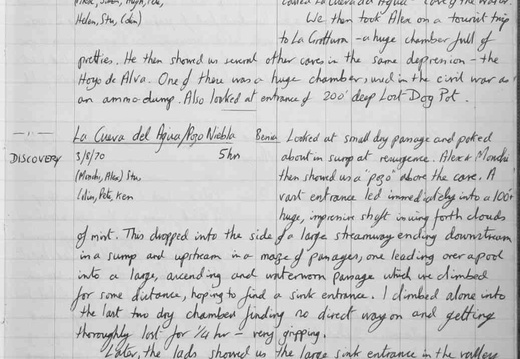 Helen, Stu, Colin)
We then took Alex on a tourist trip
to La Grotturn - a huge chamber full of
pretties. He then showed us several other caves in the same depression - the
Hoyo de Alva. One of these was a huge chamber, used in the civil war as
an ammo-dump. Also looked at entrance of 200' deep Lost Dog Pot.
La Cueva del Agua/Pozo Niebla Benia Looked at small dry passage and poked
DISCOVERY 3/8/70 5hrs about in sump at resurgence. Alex & Monchi
(Monchi, Alex) Stu, then showed us a "pozo" above the cave. A
Colin, Pete, Ken vast entrance led immediately into a 100'+
huge, impressive shaft issuing forth clouds
of mist. This dropped into the side of a large streamway ending downstream
in a sump and upstream in a maze of passages, one leading over a pool
into a large, ascending and waterworn passage which we climbed
for some distance, hoping to find a sink entrance. I climbed alone into
the last two dry chamber finding no direct way on and getting
thoroughly lost for 1/4 hr - very gripping.
Later, the lads showed us the large sink entrance in the valley